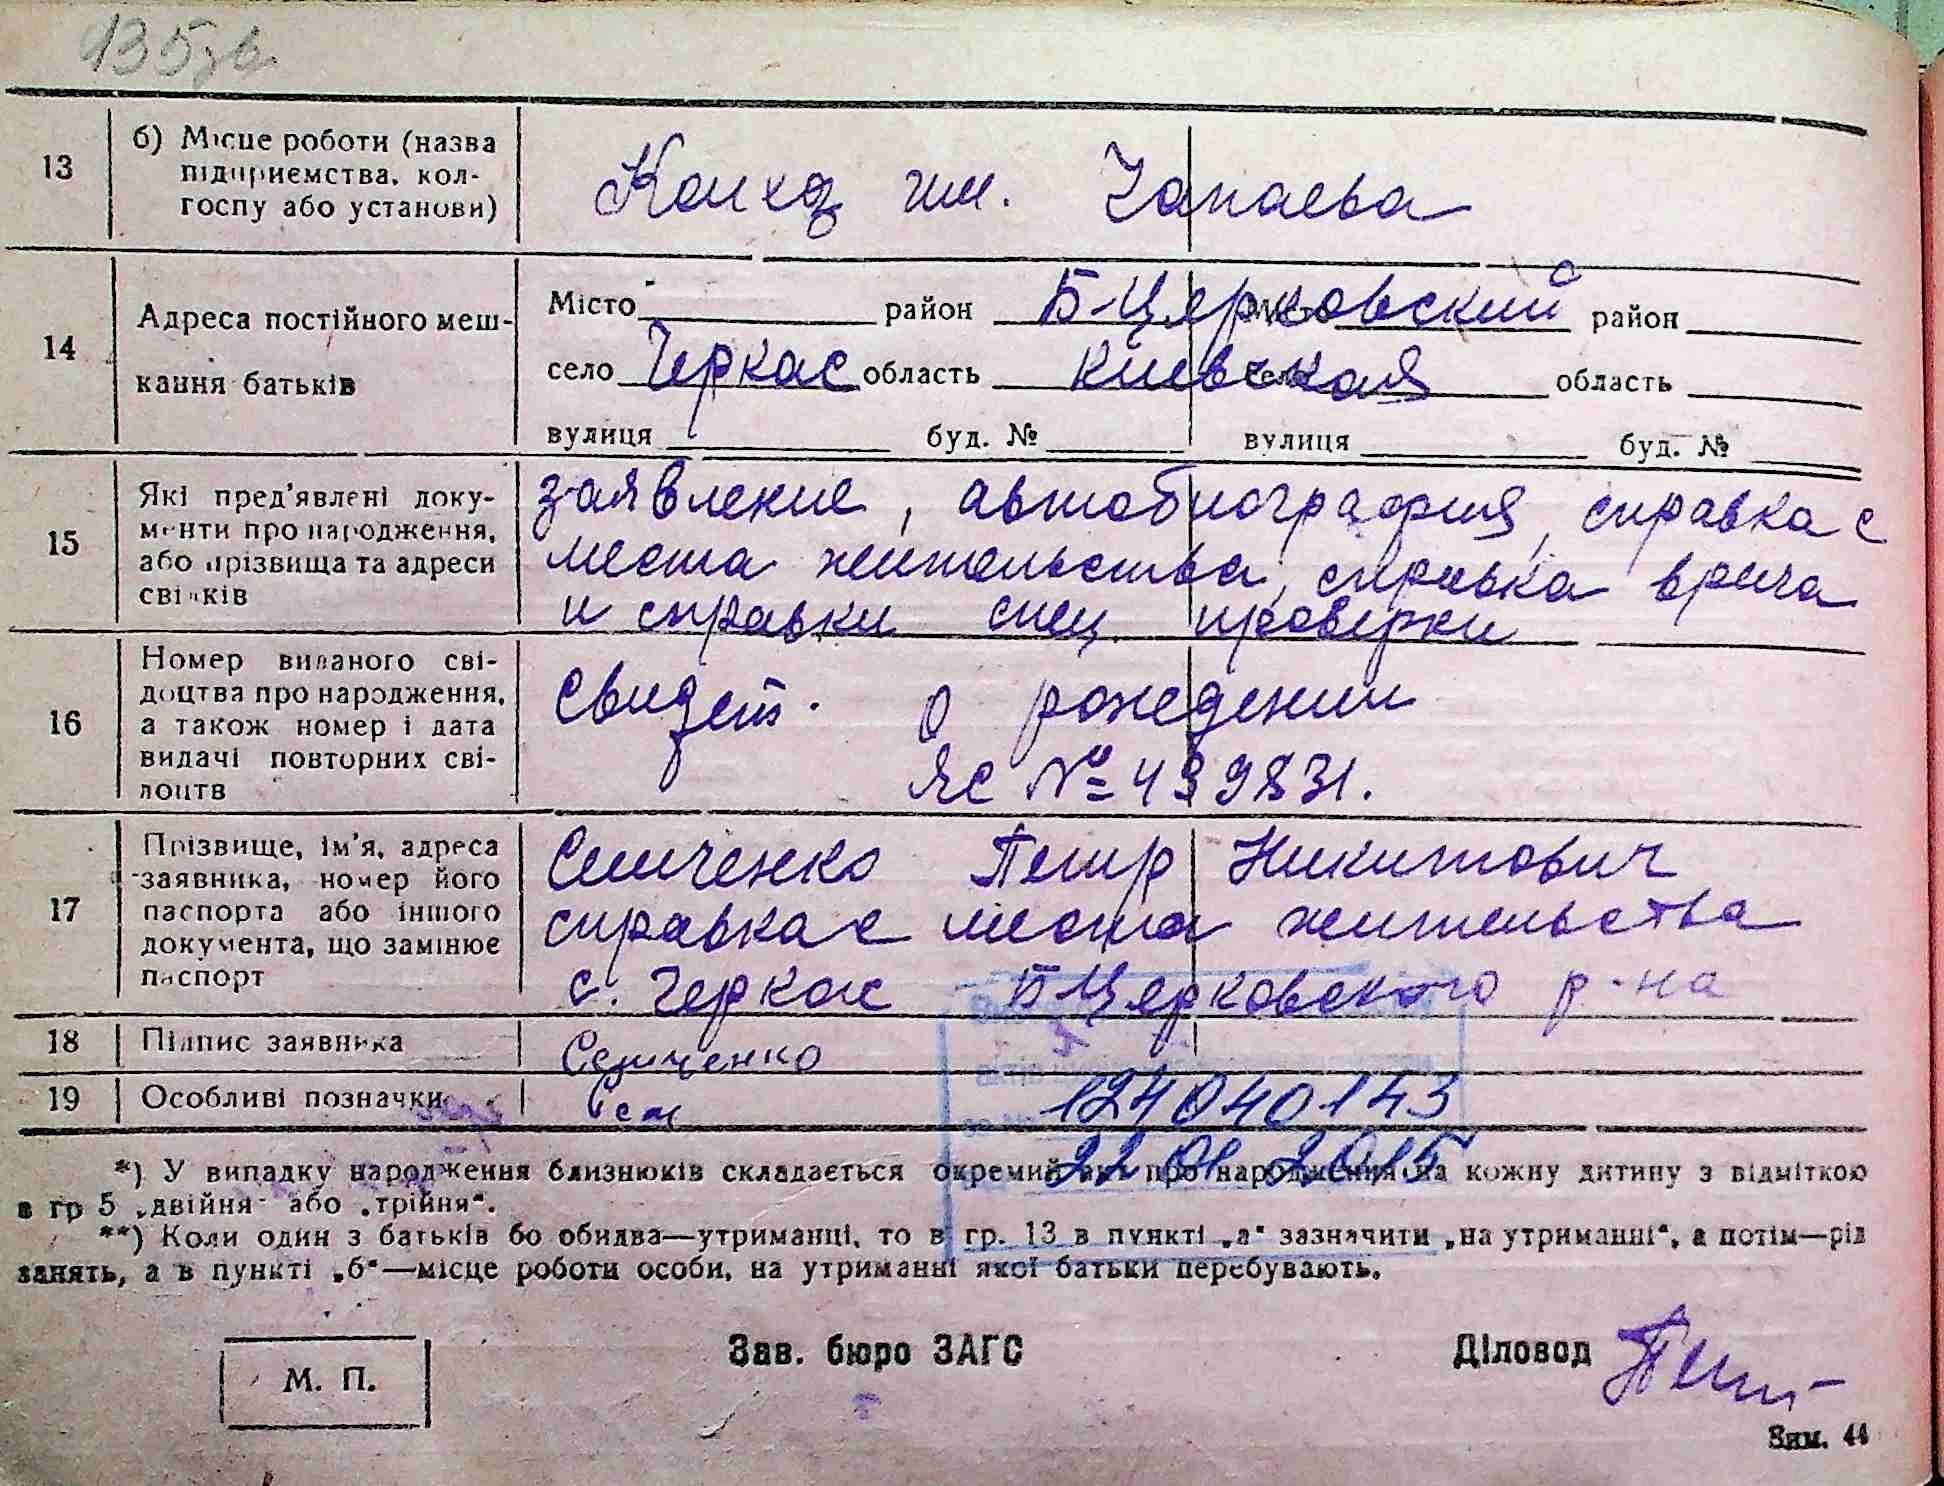 135зв.
13 б) Місце роботи (назва
підприємства, кол-
госпу або установи)
Колхоз им. Чапаева
14 Адреса постійного меш-
кання батьків
Місто район Б-Церковский Місто район
село Черкас область Киевская село область
вулиця буд. № вулиця буд. №
15 Які пред'явлені доку-
менти про народження,
або прізвища та адреси
свідків
заявление, автобиография, справка с
места жительства, справка врача
и справки спец. проверки
16 Номер виданого сві-
доцтва про народження,
а також номер і дата
видачі повторних сві-
доцтв
Свидет. о рождении
ЯС № 439831.
17 Прізвище, ім'я, адреса
заявника, номер його
паспорта або іншого
документа, що замінює
паспорт
Семченко Петр Никитович
справка с места жительства
с. Черкас Б Церковского р-на
18 Підпис заявника Семченко
19 Особливі позначки Сем
124040143
22 01 2015
*) У випадку народження близнюків складається окремий акт про народження на кожну дитину з відміткою
в гр 5 „двійня" або „трійня".
**) Коли один з батьків бо обидва—утриманці, то в гр. 13 в пункті „а" зазначити „на утриманні", а потім—рід
занять, а в пункті „б"—місце роботи особи, на утриманні якої батьки перебувають.
М. П. Зав. бюро ЗАГС Діловод
Зим. 44